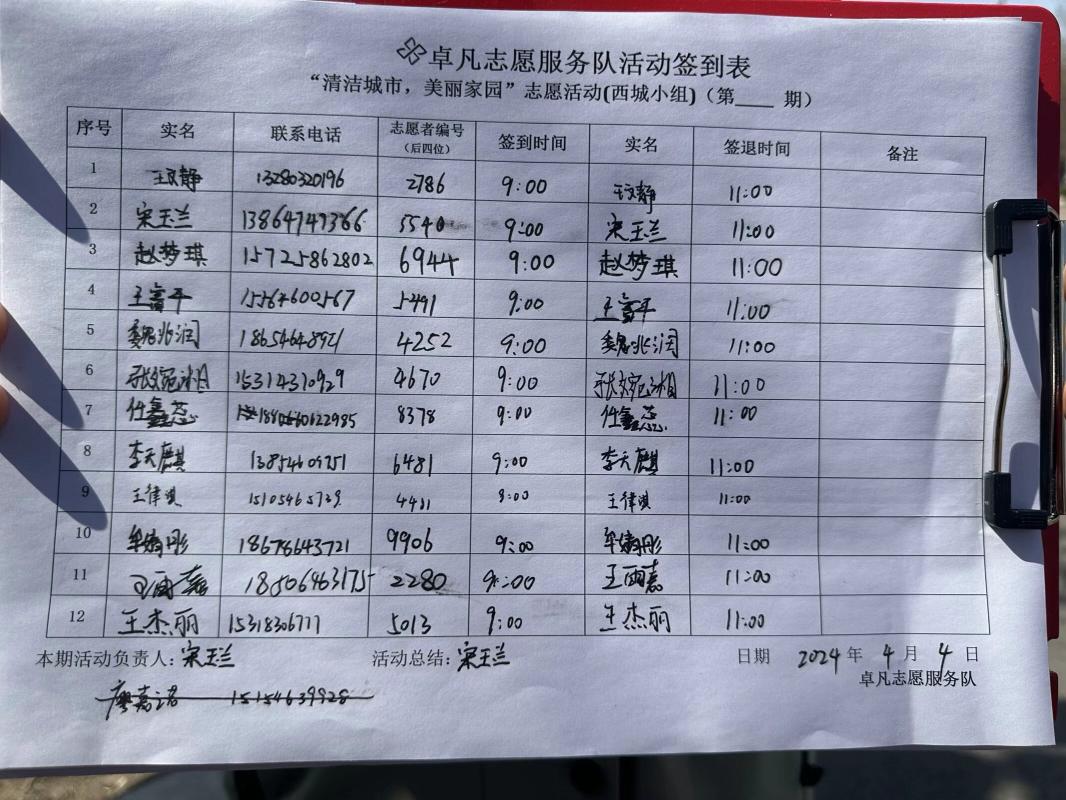 卓凡志愿服务队活动签到表
“清洁城市，美丽家园”志愿活动(西城小组)（第____ 期）
序号 实名 联系电话 志愿者编号（后四位） 签到时间 实名 签退时间 备注
1 王玟静 13280320196 2786 9:00 王玟静 11:00
2 宋玉兰 13864747366 5540 9:00 宋玉兰 11:00
3 赵梦琪 15725862802 6944 9:00 赵梦琪 11:00
4 王富平 15564600567 5491 9:00 王富平 11:00
5 魏兆润 18654648921 4252 9:00 魏兆润 11:00
6 15314310929 4670 9:00 11:00
7 任鑫蕊 8378 9:00 任鑫蕊 11:00
8 李天麒 13854609751 6481 9:00 李天麒 11:00
9 王律淇 15105465739 4431 9:00 王律淇 11:00
10 18678643721 9906 9:00 11:00
11 王雨嘉 18506463175 2280 9:00 王雨嘉 11:00
12 王杰丽 15318306777 5013 9:00 王杰丽 11:00
本期活动负责人：宋玉兰 活动总结：宋玉兰 日期 2024 年 4 月 4 日
卓凡志愿服务队
廖嘉诺 15154639928